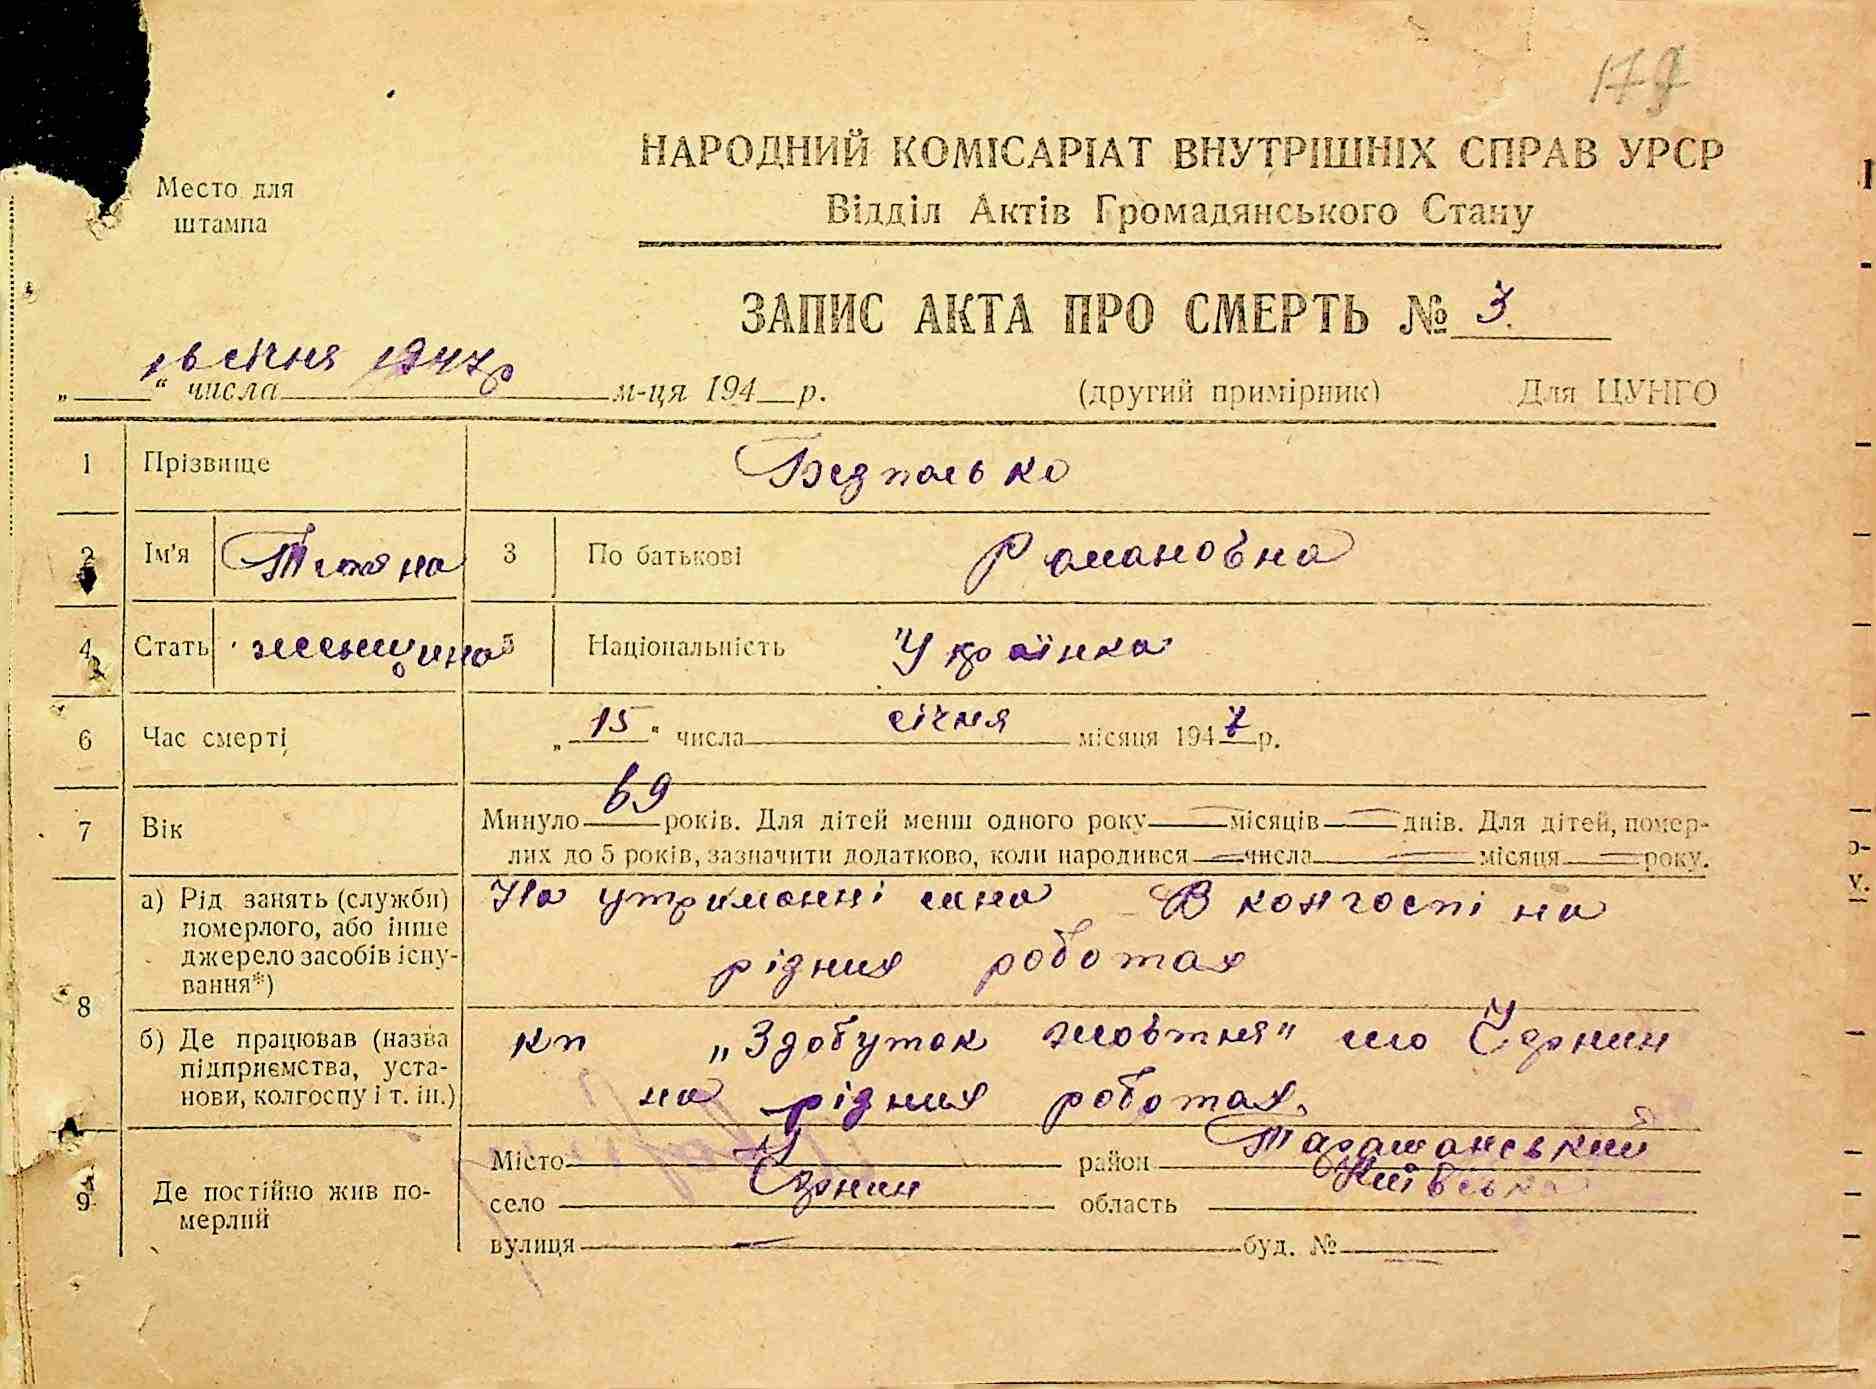 179
НАРОДНИЙ КОМІСАРІАТ ВНУТРІШНІХ СПРАВ УРСР
Место для
штампа
Відділ Актів Громадянського Стану
ЗАПИС АКТА ПРО СМЕРТЬ № 3.
січня 1947р
„ “ числа м-ця 194 р. (другий примірник) Для ЦУНГО
1 Прізвище Бедпалько
2 Ім'я Тетяна 3 По батькові Романовна
4 Стать женщина 5 Національність Українка
6 Час смерті „ 15 “ числа січня місяця 1947 р.
7 Вік Минуло 69 років. Для дітей менш одного року — місяців — днів. Для дітей, помер-
лих до 5 років, зазначити додатково, коли народився — числа — місяця — року.
8 а) Рід занять (служби) померлого, або інше джерело засобів існу-вання*) На утриманні сина В колгоспі на
рідних роботах
б) Де працював (назва підприємства, уста-нови, колгоспу і т. ін.) кп „Здобуток жовтня“ Чернин
на рідних роботах.
9 Де постійно жив по-мерлий Місто район Таращанський
село Чернин область Київська
вулиця — буд. № —